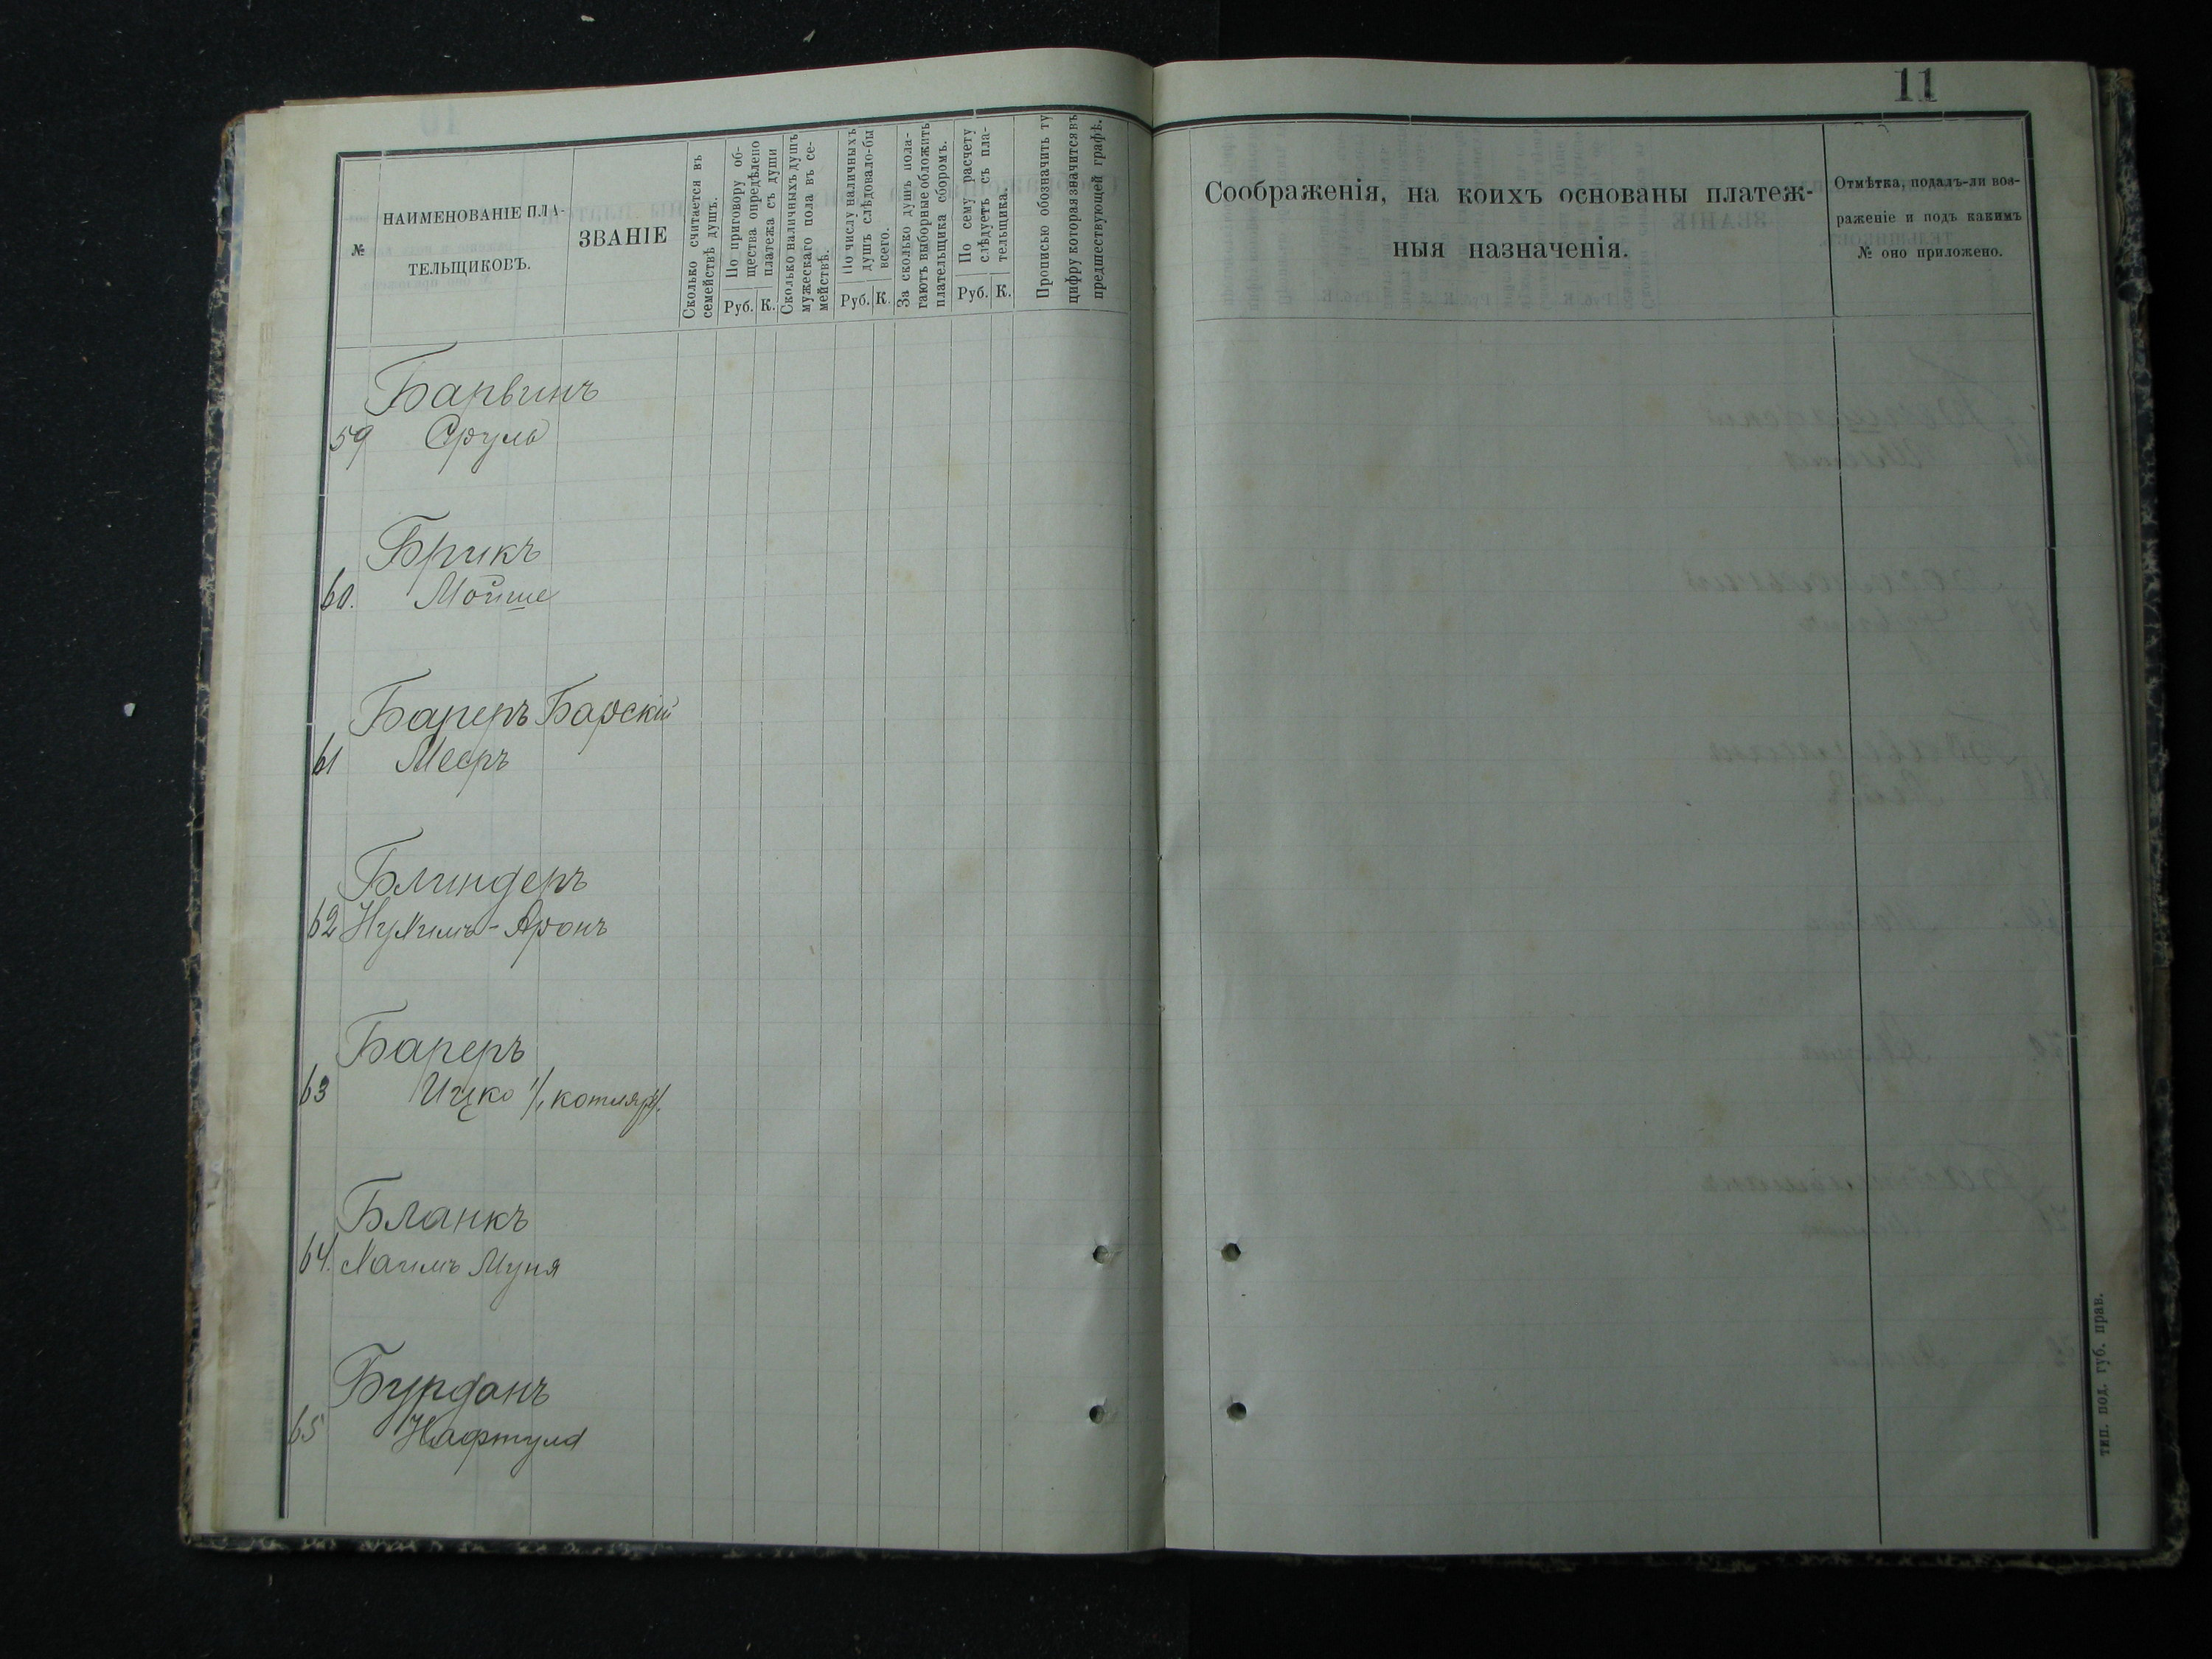 11
№
НАИМЕНОВАНІЕ ПЛА-
ТЕЛЬЩИКОВЪ.
ЗВАНІЕ
Сколько считается въ
семействѣ душъ.
По приговору об-
щества опредѣлено
платежа съ души
Руб. К.
Сколько наличныхъ душъ
мужескаго пола въ се-
мействѣ.
По числу наличныхъ
душъ слѣдовало-бы
всего.
Руб. К.
За сколько душъ пола-
гаютъ выборные обложить
плательщика сборомъ.
По сему расчету
слѣдуетъ съ пла-
тельщика.
Руб. К.
Прописью обозначить ту
цифру которая значится въ
предшествующей графѣ.
Соображенія, на коихъ основаны платеж-
ныя назначенія.
Отмѣтка, подалъ-ли воз-
раженіе и подъ какимъ
№ оно приложено.
Барвинъ
59 Сруль
Брикъ
60. Мойше
Bареръ Барскій
61 Мееръ
Блиндеръ
62 Нухимъ-Аронъ
Бареръ
63 Ицко /котляръ/
Бланкъ
64. Хаимъ Муня
Бурданъ
65 Нафтула
тип. под. губ. прав.